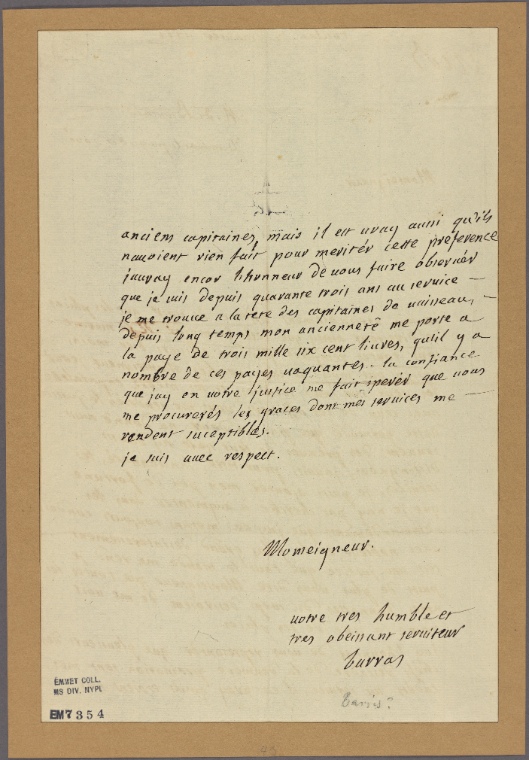 anciens capitaines, mais il est vray aussi qu'ils
navoient rien fait pour meriter cette preference
jauray encor lhonneur de vous faire observér
que je suis depuis quarante trois ans au service —
je me trouve a la tete des capitaines de vaisseau, —
depuis long temps mon ancienneté me porte a
la paye de trois mille six cent livres, quil y a
nombre de ces payes vaquantes. la confiance
que jay en votre justice me fait sperér que vous
me procurerés les graces dont mes services me —
rendent suceptibles.
je suis avec respect.
Monseigneur.
votre tres humble et
tres obeissant serviteur
barras
Barras?
EMMET COLL.
MS DIV. NYPL
EM7354